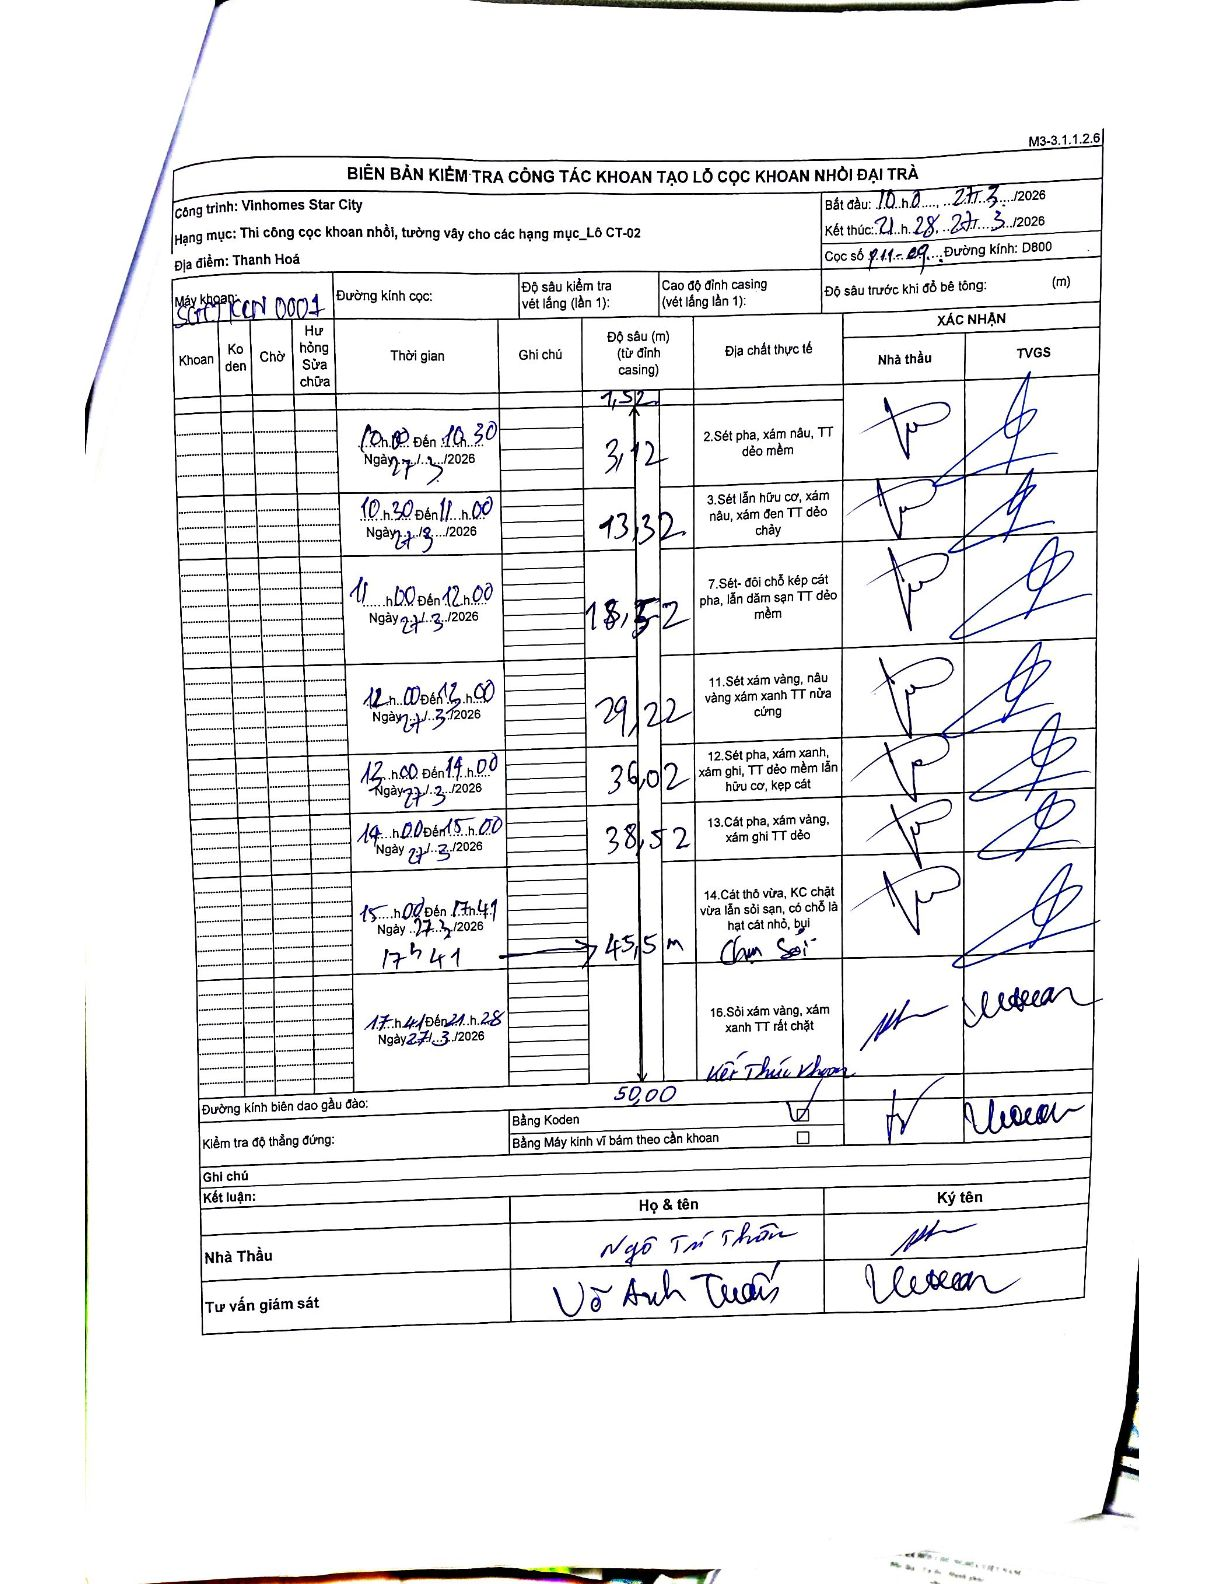 M3-3.1.1.2.6
BIÊN BẢN KIỂM TRA CÔNG TÁC KHOAN TẠO LỖ CỌC KHOAN NHỒI ĐẠI TRÀ
Công trình: Vinhomes Star City
Hạng mục: Thi công cọc khoan nhồi, tường vây cho các hạng mục_Lô CT-02
Địa điểm: Thanh Hoá
Bắt đầu: 10.h.0...., ..27...3..../2026
Kết thúc: 21.h.28, .27...3/2026
Cọc số P11-09....Đường kính: D800
Máy khoan:
0001
Đường kính cọc:
Độ sâu kiểm tra vét lắng (lần 1):
Cao độ đỉnh casing (vét lắng lần 1):
Độ sâu trước khi đổ bê tông: (m)
Khoan
Ko den
Chờ
Hư hỏng Sửa chữa
Thời gian
Ghi chú
Độ sâu (m) (từ đỉnh casing)
Địa chất thực tế
XÁC NHẬN
Nhà thầu
TVGS
1,52
10.h.00... Đến 10.h.30
Ngày 27./.3../2026
3,12
2.Sét pha, xám nâu, TT
dẻo mềm
10.h.30 Đến 11...h.00
Ngày 27./3..../2026
13,32
3.Sét lẫn hữu cơ, xám
nâu, xám đen TT dẻo
chảy
11....h00 Đến 12.h.00
Ngày 27./.3../2026
18,52
7.Sét- đôi chỗ kép cát
pha, lẫn dăm sạn TT dẻo
mềm
12.h..00 Đến 13.h.00
Ngày 27./..3./2026
29,22
11.Sét xám vàng, nâu
vàng xám xanh TT nửa
cứng
13..h.00 Đến 14.h.00
Ngày 27./.3../2026
36,02
12.Sét pha, xám xanh,
xám ghi, TT dẻo mềm lẫn
hữu cơ, kẹp cát
14...h.00 Đến 15.h.00
Ngày 27./.3../2026
38,52
13.Cát pha, xám vàng,
xám ghi TT dẻo
15...h00 Đến 17.h.41
Ngày ..27.3./2026
17h41
45,5 m
14.Cát thô vừa, KC chặt
vừa lẫn sỏi sạn, có chỗ là
hạt cát nhỏ, bụi
Chạm Sỏi
17..h.41 Đến 21..h.28
Ngày 27./..3./2026
16.Sỏi xám vàng, xám
xanh TT rất chặt
Kết Thúc Khoan
50,00
Đường kính biên dao gầu đào:
Kiểm tra độ thẳng đứng:
Bằng Koden
Bằng Máy kinh vĩ bám theo cần khoan
Ghi chú
Kết luận:
Họ & tên
Ký tên
Nhà Thầu
Ngô Trí Thân
Tư vấn giám sát
Võ Anh Tuấn